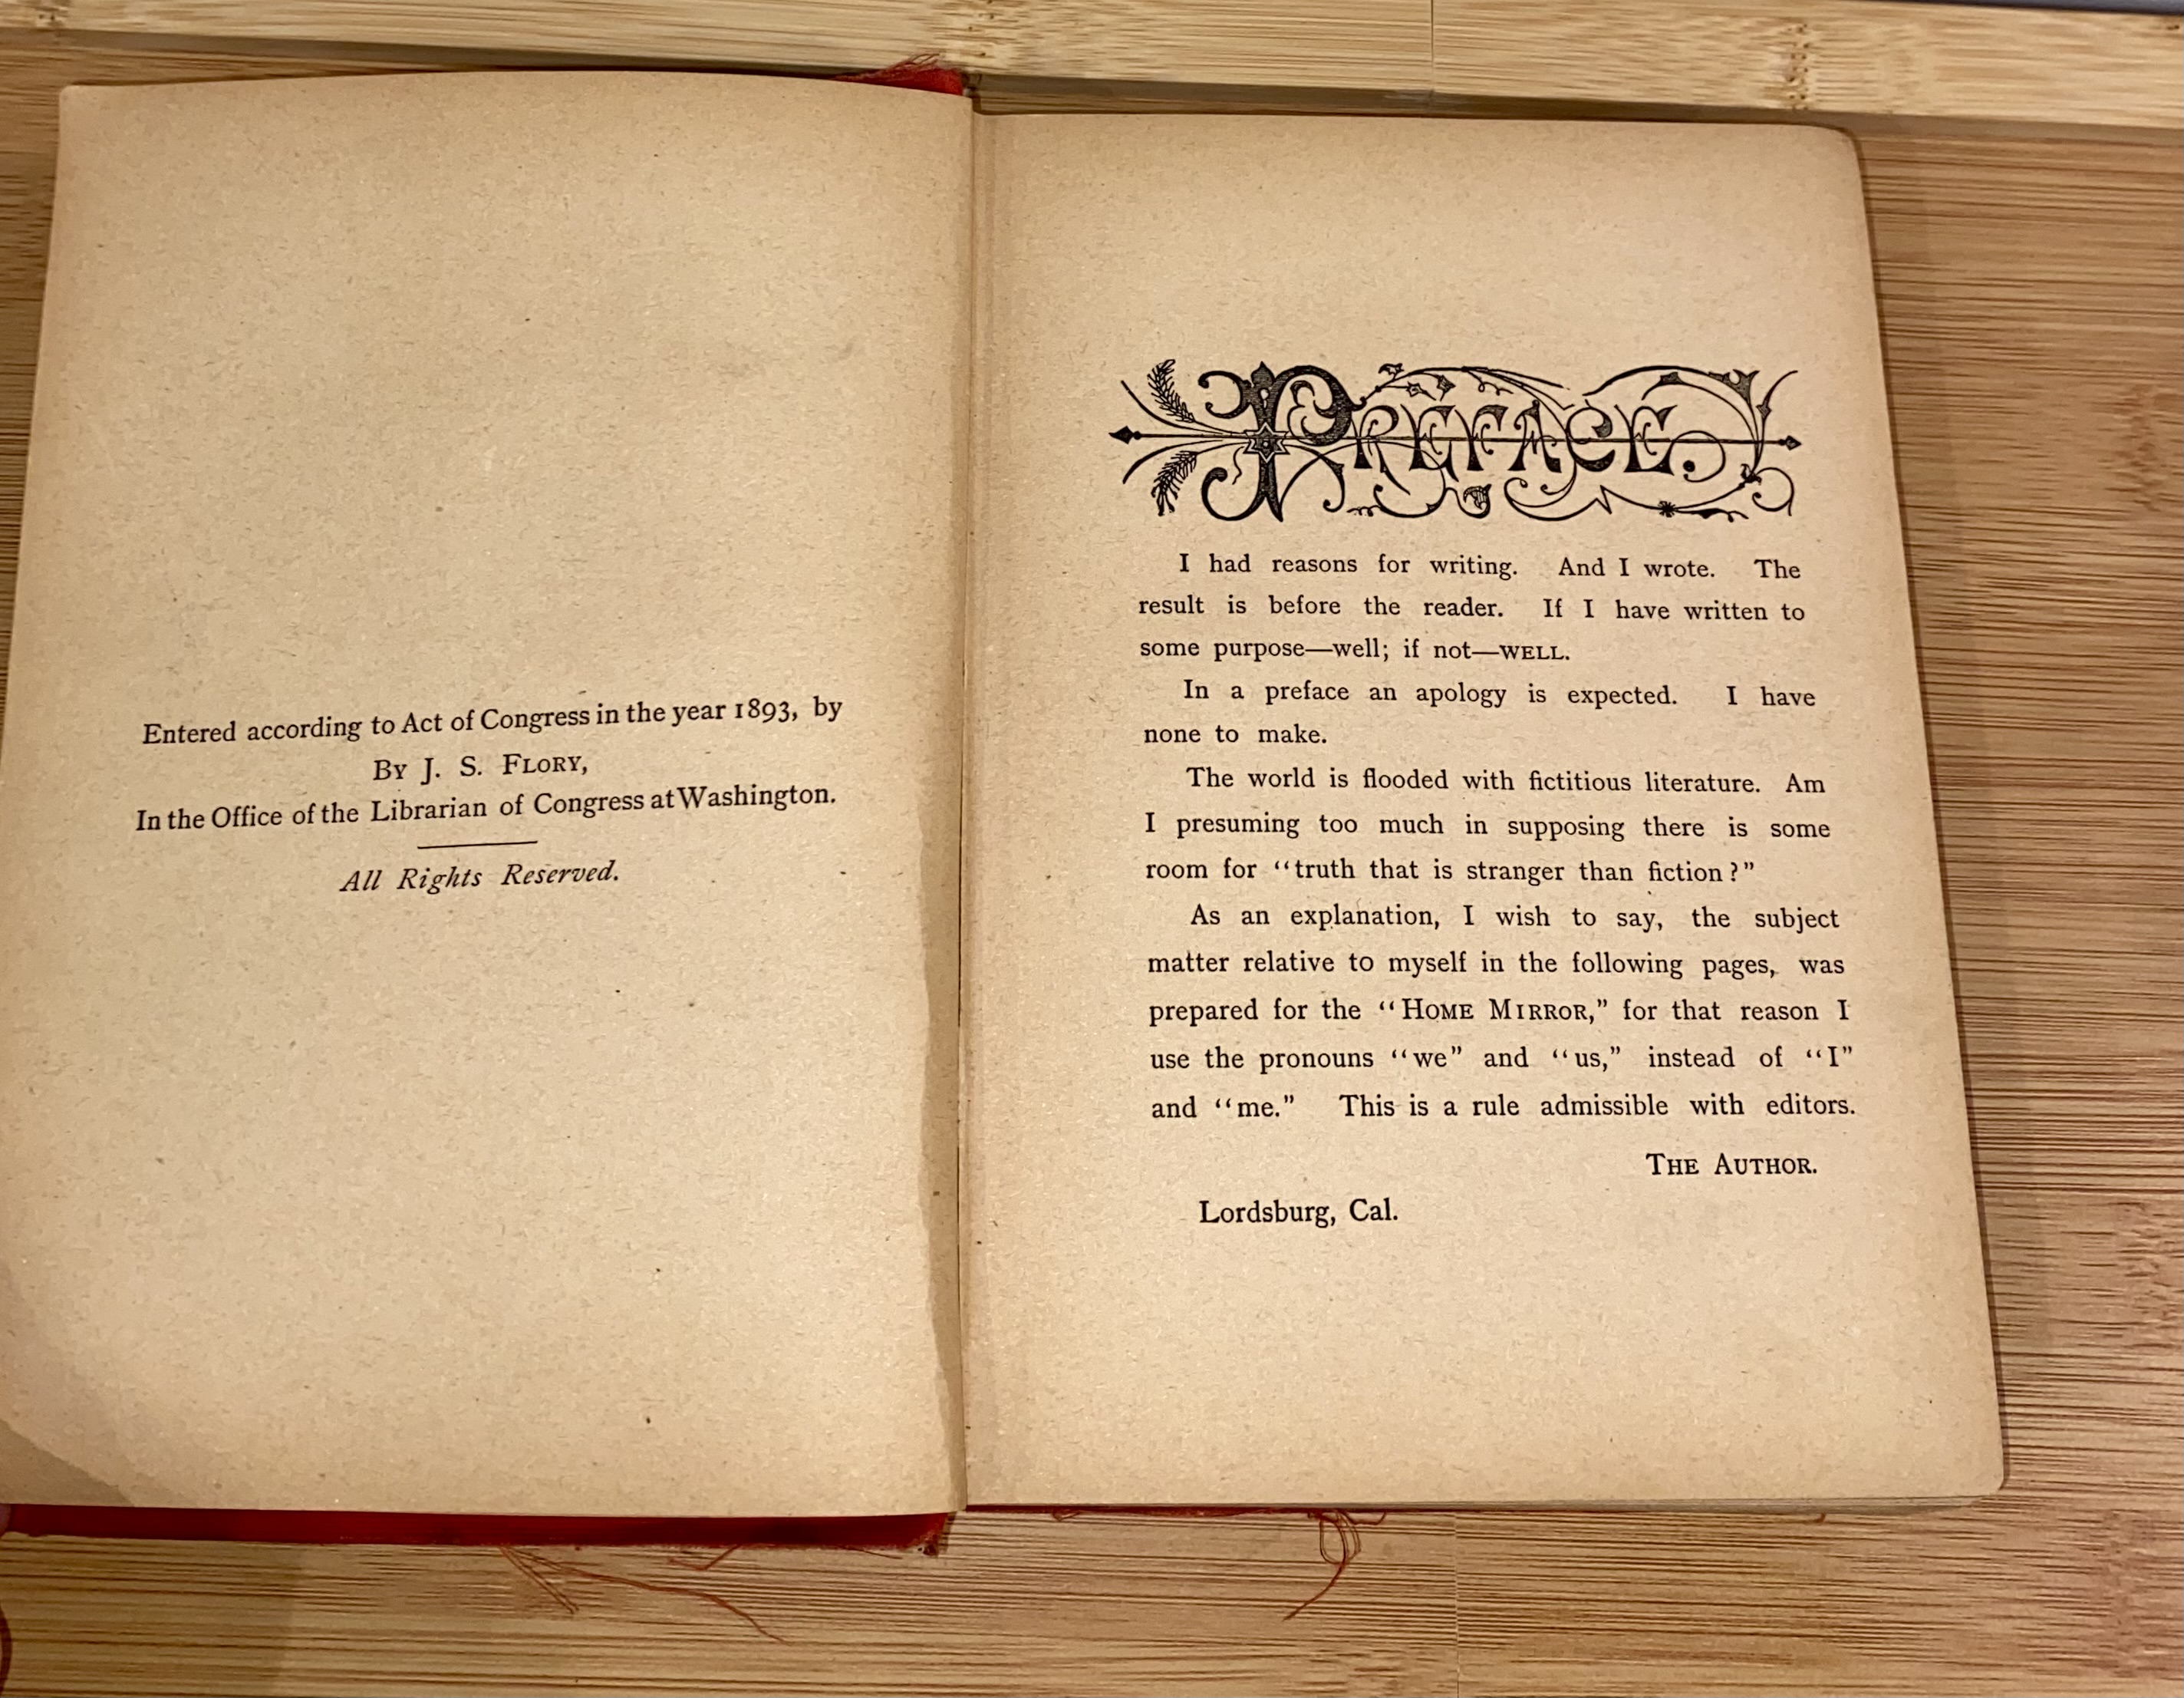 Entered according to Act of Congress in the year 1893, by
By J. S. Flory,
In the Office of the Librarian of Congress at Washington.
All Rights Reserved.
Preface.
I had reasons for writing. And I wrote. The
result is before the reader. If I have written to
some purpose—well; if not—WELL.
In a preface an apology is expected. I have
none to make.
The world is flooded with fictitious literature. Am
I presuming too much in supposing there is some
room for “truth that is stranger than fiction?”
As an explanation, I wish to say, the subject
matter relative to myself in the following pages, was
prepared for the “Home Mirror,” for that reason I
use the pronouns “we” and “us,” instead of “I”
and “me.” This is a rule admissible with editors.
The Author.
Lordsburg, Cal.